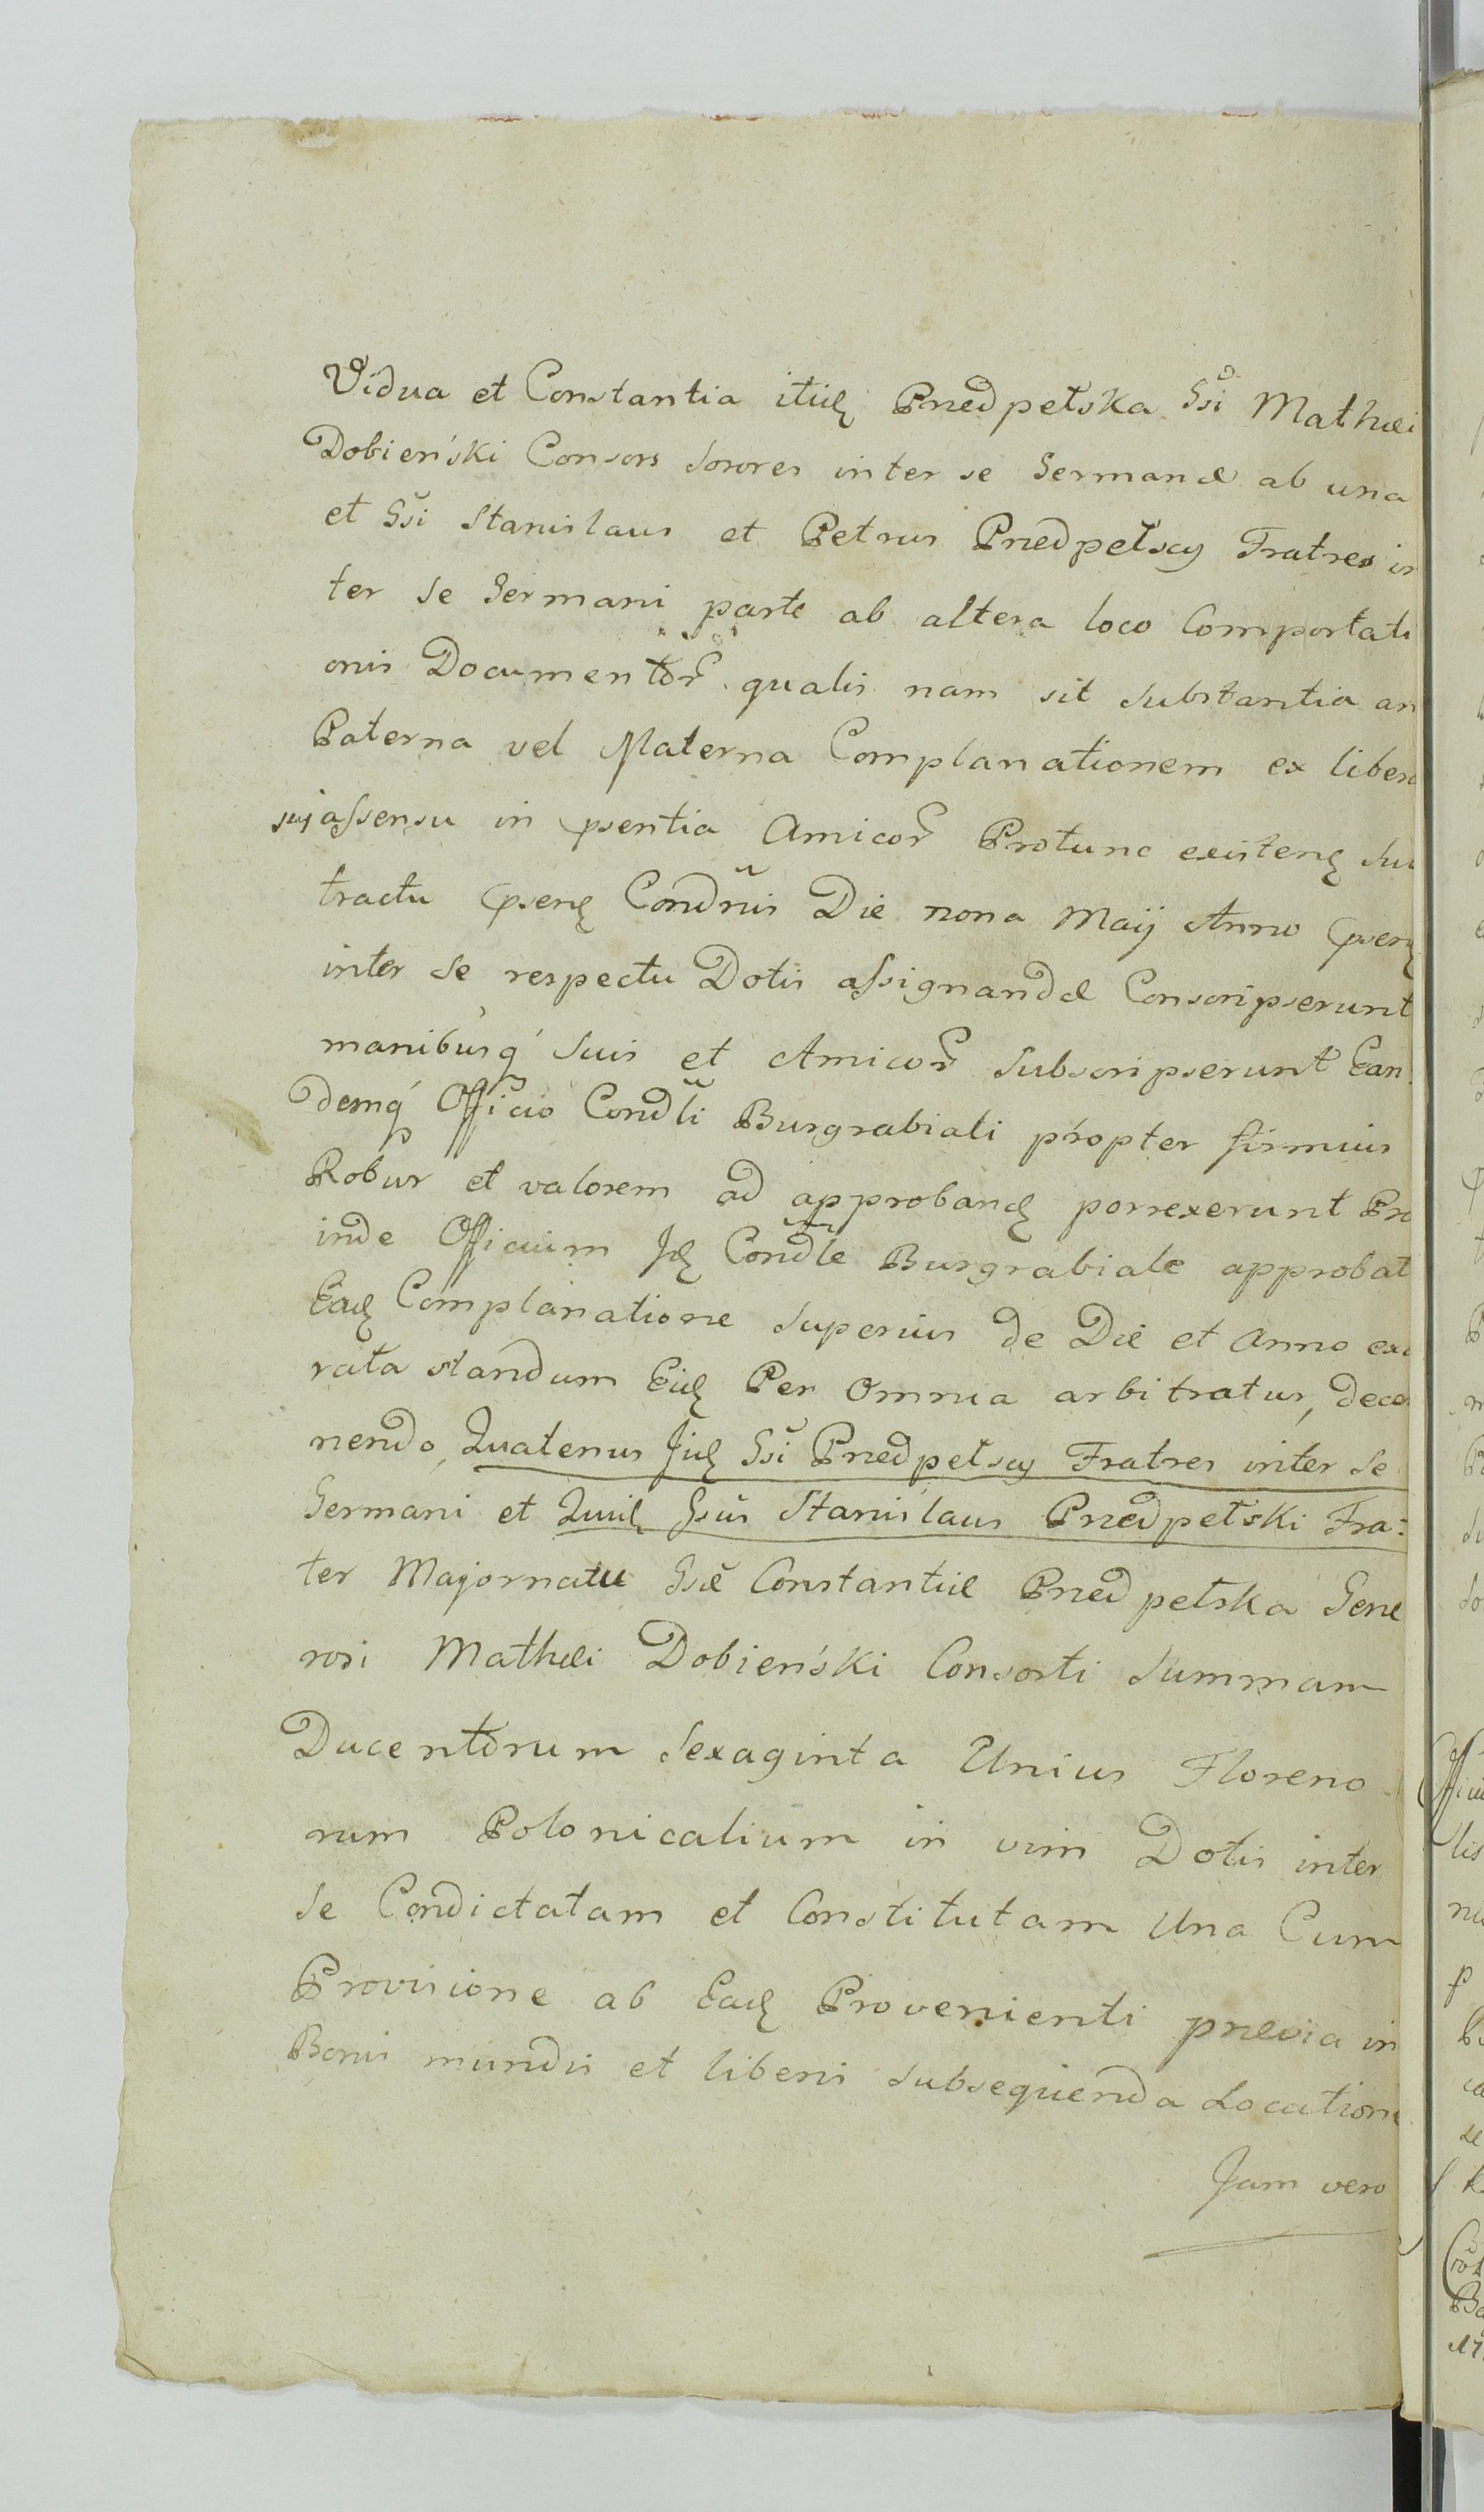 Vidua et Constantia itid Przedpełska Gsi Mathæi
Dobieński Consors Sorores inter se Germanæ ab una
et Gsi Stanislaus et Petrus Przedpełscy Fratres in
ter se Germani parte ab altera loco Comportati
onis Documentor qualis nam sit Substantia an
Paterna vel Materna Complanationem ex libero
suj assensu in psentia Amicor Protunc existen Su
tractu psen Condnis Die nona Maij Anno psen
inter Se respectu Dotis assignandæ Conscripserunt
manibusq Suis et Amicor Subscripserunt Ean
demq Officio Condli Burgrabiali propter firmius
Robur et valorem ad approband porrexerunt Pro
inde Officium Id Condle Burgrabiale approbat
Ead Complanatione Superius de Die et Anno exa
rata standum Eid Per Omnia arbitratur, decer
nendo, Quatenus Iid Gsi Przedpełscy Fratres inter Se
Germani et Gsus Stanislaus Przedpełski Fra:
ter Majornatu Gsæ Constantiæ Przedpełska Gene
rosi Mathæi Dobieński Consorti Summam
Ducentorum Sexaginta Unius Floreno
rum Polonicalium in vim Dotis inter
Se Condictatam et Constitutam Una Cum
Provisione ab Ead Provenienti prævia in
Bonis mundis et liberis subsequenda Locatione
Jam vero